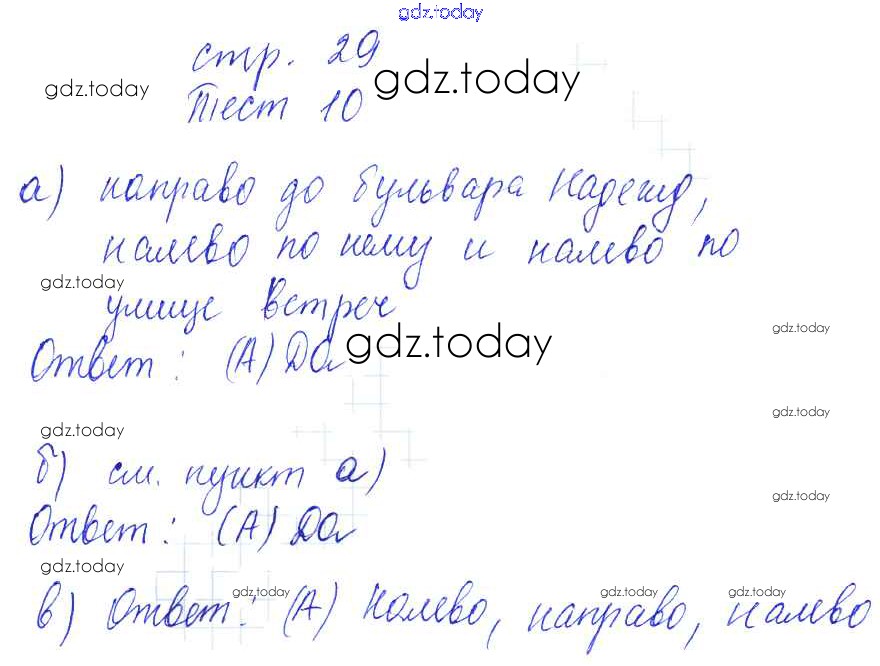 gdz.today
стр. 29
gdz.today gdz.today
Тест 10
а) направо до бульвара Надежд,
налево по нему и налево по
gdz.today
улице Встреч
gdz.today
Ответ: (А) Да gdz.today
gdz.today
gdz.today
б) см. пункт а)
gdz.today
Ответ: (А) Да
gdz.today
gdz.today gdz.today gdz.today
в) Ответ: (А) Налево, направо, налево